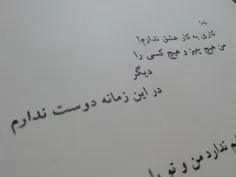 ندا
کاری به کار عشق ندارم!
من هیچ چیز و هیچ کسی را
دیگر
در این زمانه دوست ندارم
ندارد من و تو را